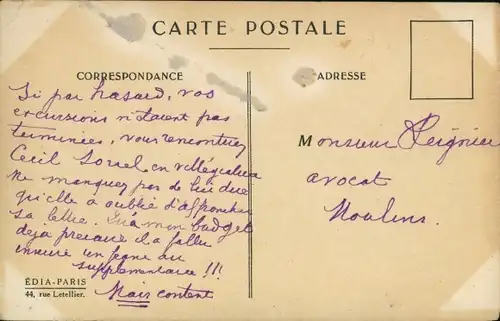 CARTE POSTALE
CORRESPONDANCE
ADRESSE
Si par hasard, vos
excursions n'étaient pas
terminées, vous rencontriez
Cécil Sorel en villégiature
ne manquez pas de lui dire
qu'elle a oublié d'affranchir
sa lettre. Qu'à mon budget
déjà précaire il a fallu
un franc au
supplémentaire !!!
Mais content
Monsieur Peignier
avocat
Moulins.
ÉDIA-PARIS
44, rue Letellier.